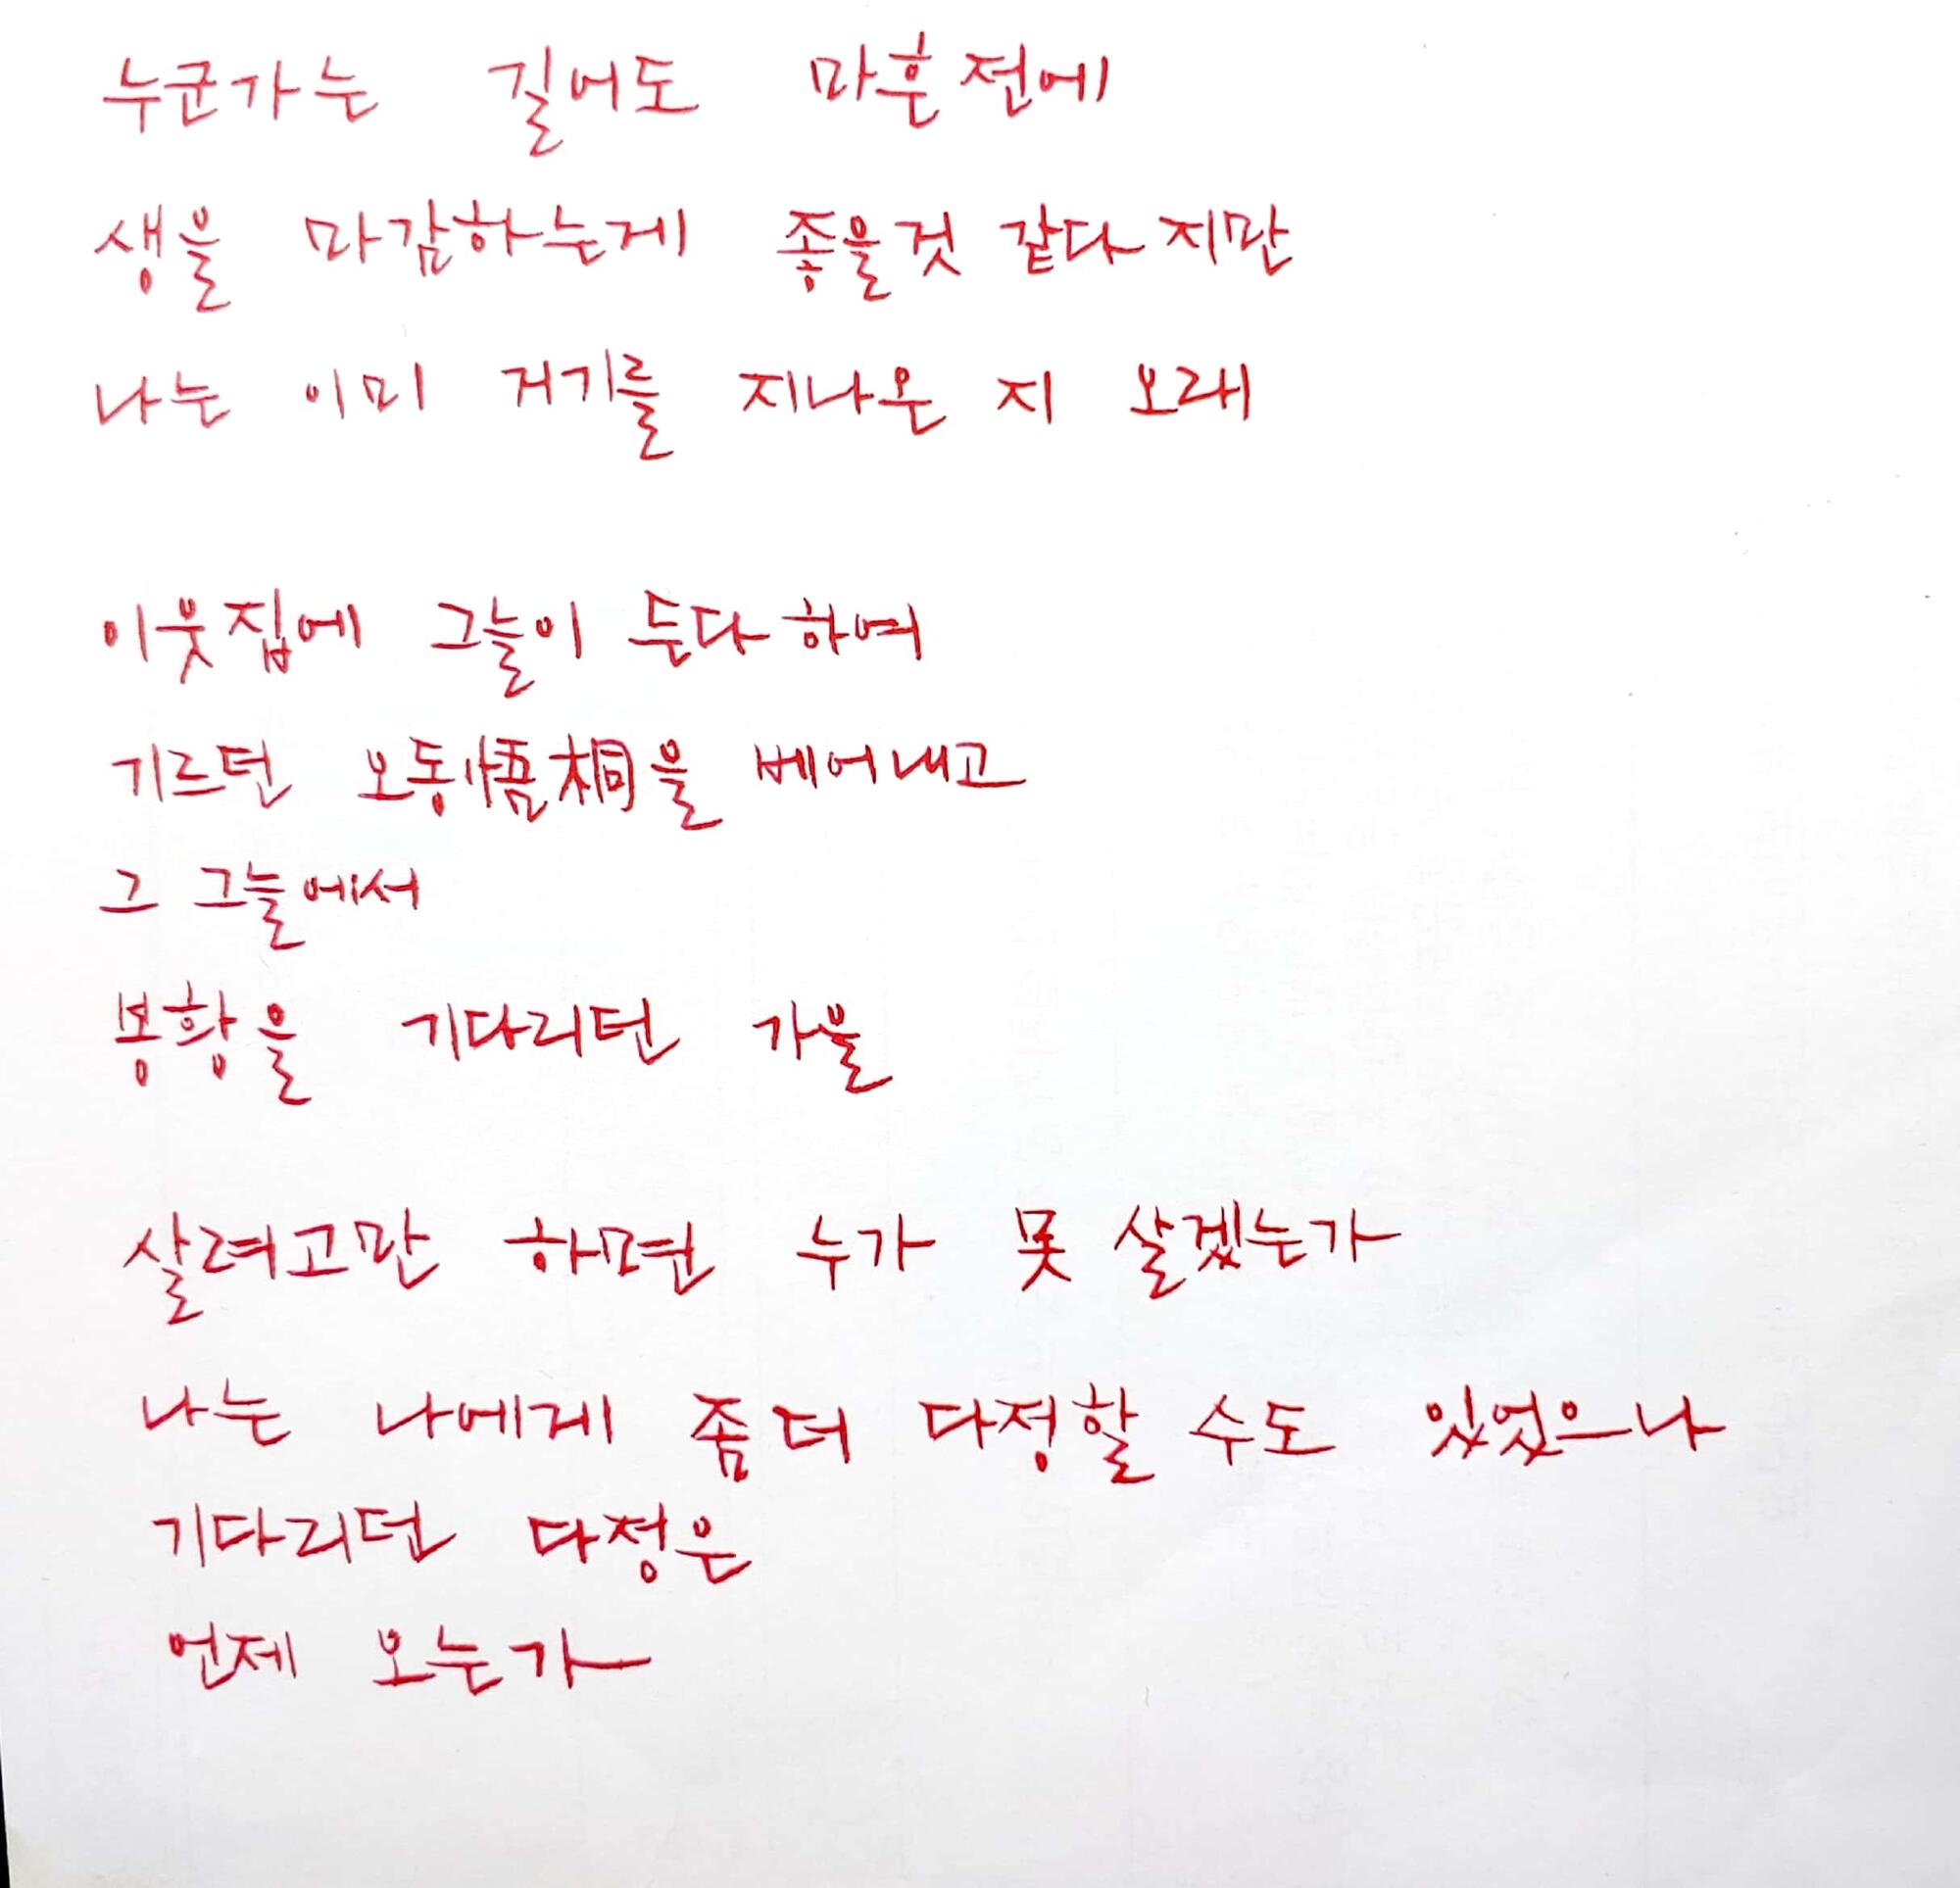 누군가는 길어도 마흔전에
생을 마감하는게 좋을것 같다지만
나는 이미 거기를 지나온 지 오래
이웃집에 그늘이 든다하여
기르던 오동梧桐을 베어내고
그 그늘에서
봉황을 기다리던 가을
살려고만 하면 누가 못 살겠는가
나는 나에게 좀 더 다정할 수도 있었으나
기다리던 다정은
언제 오는가